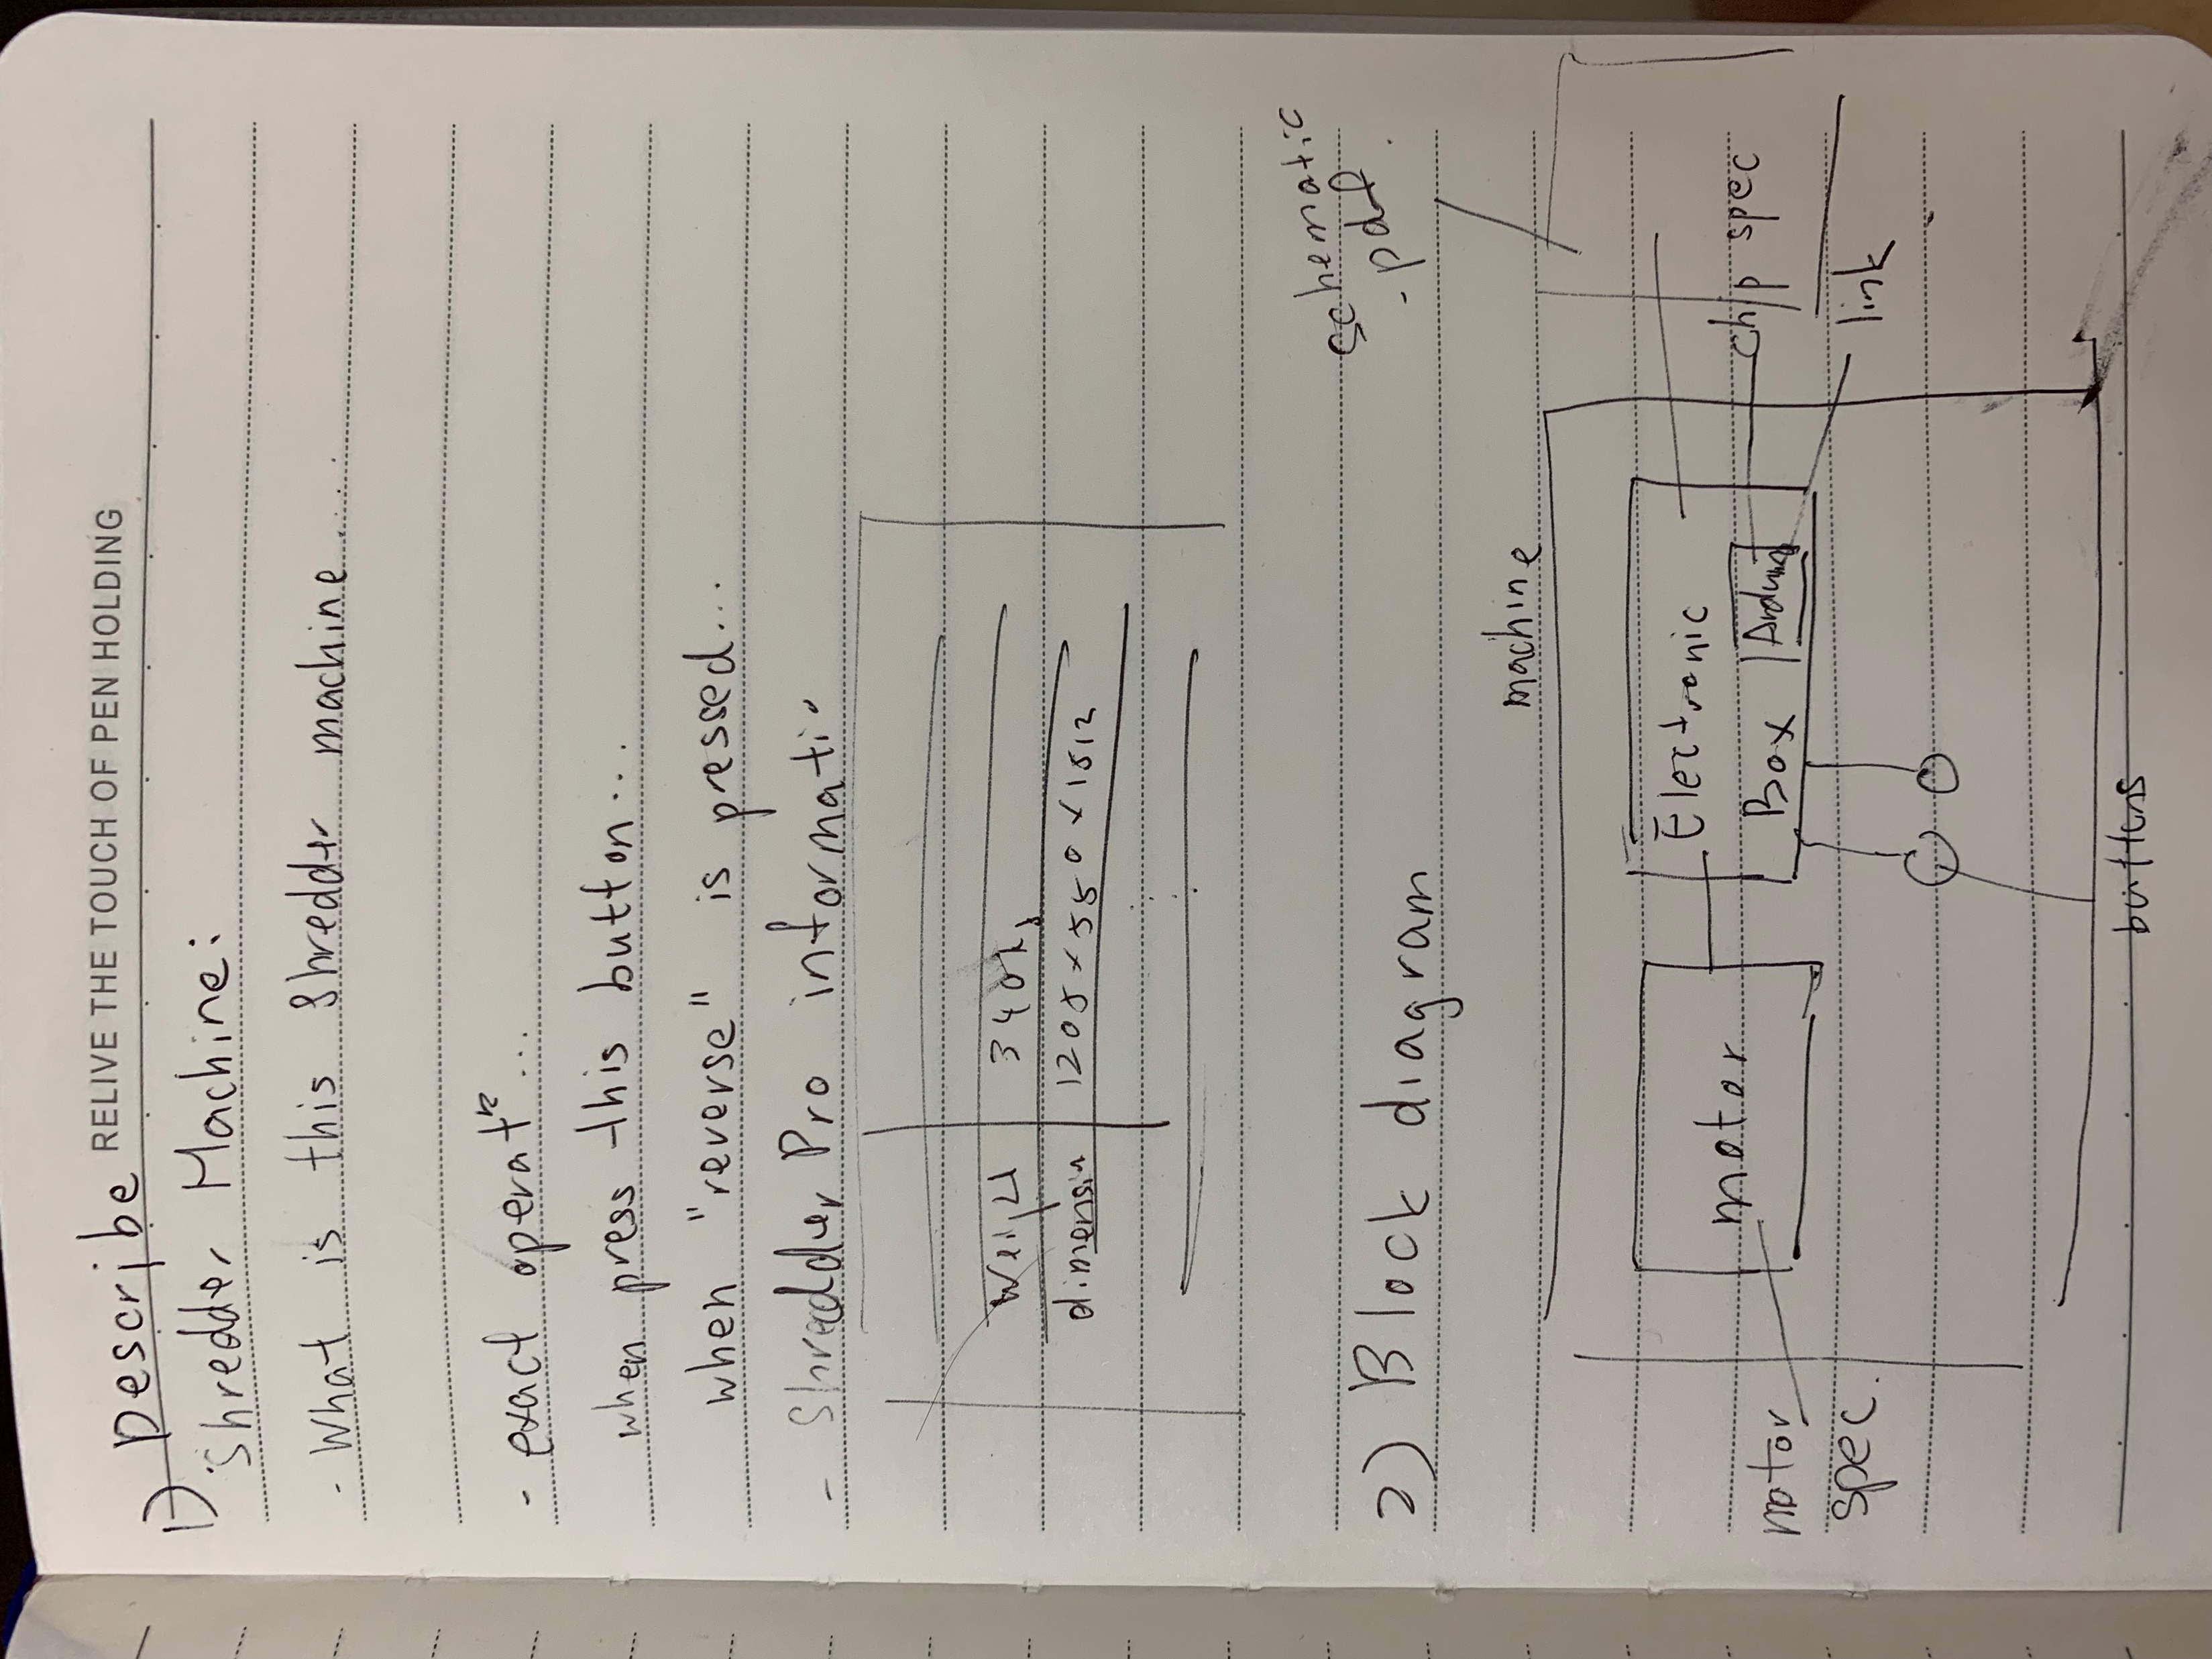 RELIVE THE TOUCH OF PEN HOLDING
1) Describe
Shredder Machine:
- What is this Shredder machine.....
- exact operatn...
when press this button...
when "reverse" is pressed...
- Shredder Pro informati
Weight 340kg
dimension 1208 x 550 x 1512
2) Block diagram
schematic
- pdf.
machine
motor
Electronic
Box
chip spec
link
motor
spec.
buttons